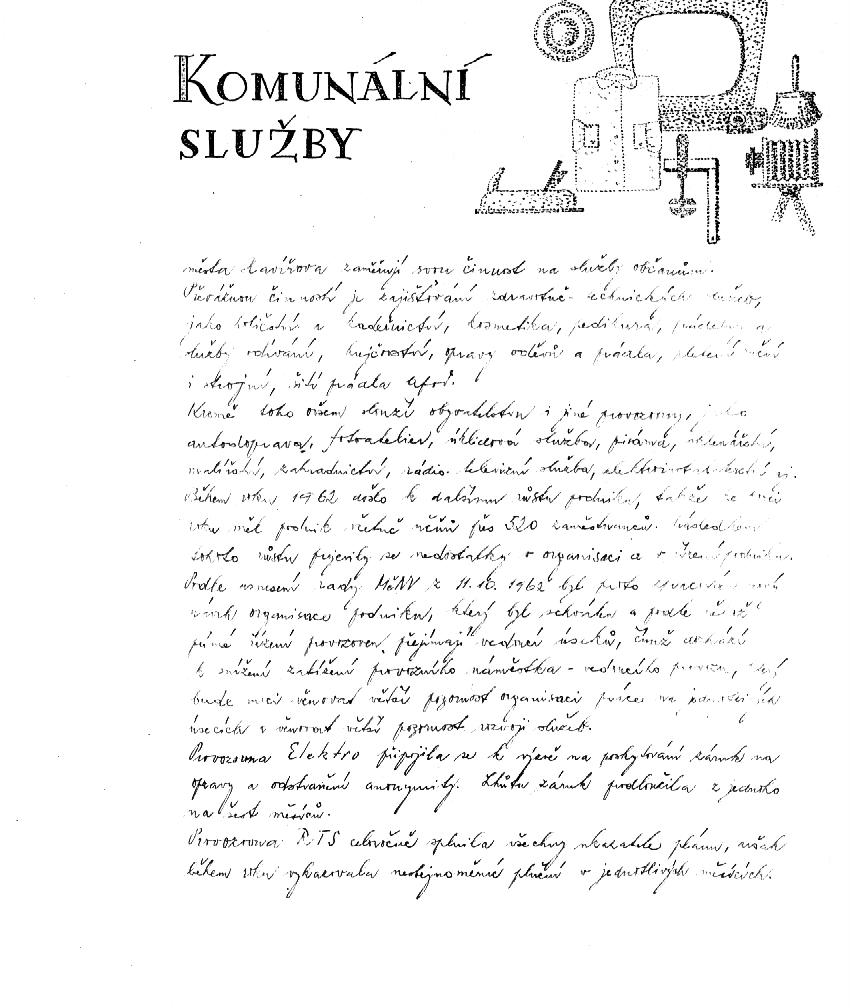 KOMUNÁLNÍ
SLUŽBY
města Havířova zaměřují svou činnost na služby občanům.
Převážnou činností je zajišťování zdravotně-technických služeb,
jako holičství a kadeřnictví, kosmetika, pedikura, prádelna a
služby odívání, krejčovství, opravy oděvů a prádla, pletení ruční
i strojní, šití prádla apod.
Kromě toho ovšem slouží obyvatelstvu i jiné provozovny, jako
autodoprava, fotoateliér, úklidová služba, písárna, sklenářství,
malířství, zahradnictví, rádio-televizní služba, elektroinstalatérství aj.
Během roku 1962 došlo k dalšímu růstu podniku, takže ke konci
roku měl podnik včetně učňů přes 520 zaměstnanců. Následkem
tohoto růstu projevily se nedostatky v organisaci a v řízení podniku.
Podle usnesení rady MěNV z 11.10.1962 byl proto vypracován nový
návrh organisace podniku, který byl schválen a podle něhož
přímé řízení provozoven přejímají vedoucí úseků, čímž dochází
k snížení zatížení provozního náměstka - vedoucího provozu, který
bude moci věnovat větší pozornost organisaci práce na jednotlivých
úsecích a věnovat větší pozornost rozvoji služeb.
Provozovna Elektro připojila se k výzvě na poskytování záruk na
opravy a odstranění anonymity. Lhůtu záruk prodloužila z jednoho
na šest měsíců.
Provozovna RTS celoročně splnila všechny ukazatele plánu, však
během roku vykazovala nestejnoměrné plnění v jednotlivých měsících.